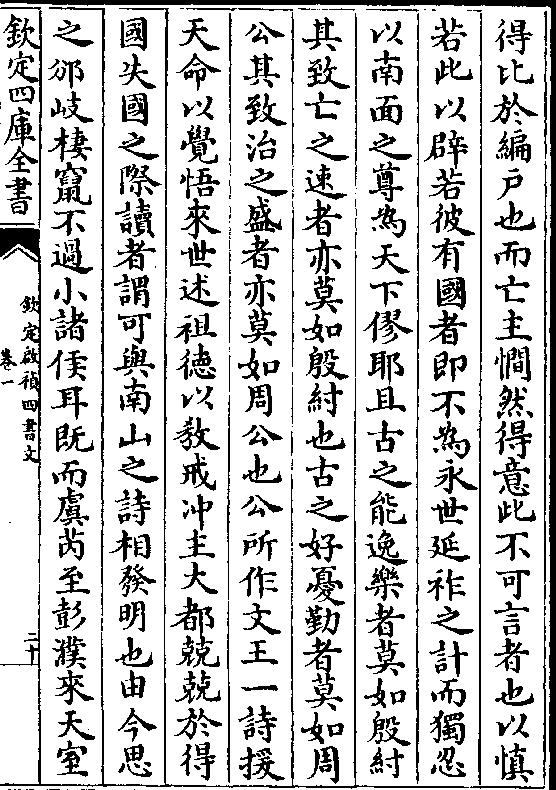 得比於編戶也而亡主憪然得意此不可言者也以慎
若此以辟若彼有國者即不為永世延祚之計而獨忍
以南面之尊為天下僇耶且古之能逸樂者莫如殷紂
其致亡之速者亦莫如殷紂也古之好憂勤者莫如周
公其致治之盛者亦莫如周公也公所作文王一詩援
天命以覺悟來世述祖德以教戒冲主大都兢兢於得
國失國之際讀者謂可與南山之詩相發明也由今思
之邠岐棲竄不過小諸侯耳既而虞芮至彭濮來天室
欽定四庫全書
欽定啟禎四書文
卷一
二十